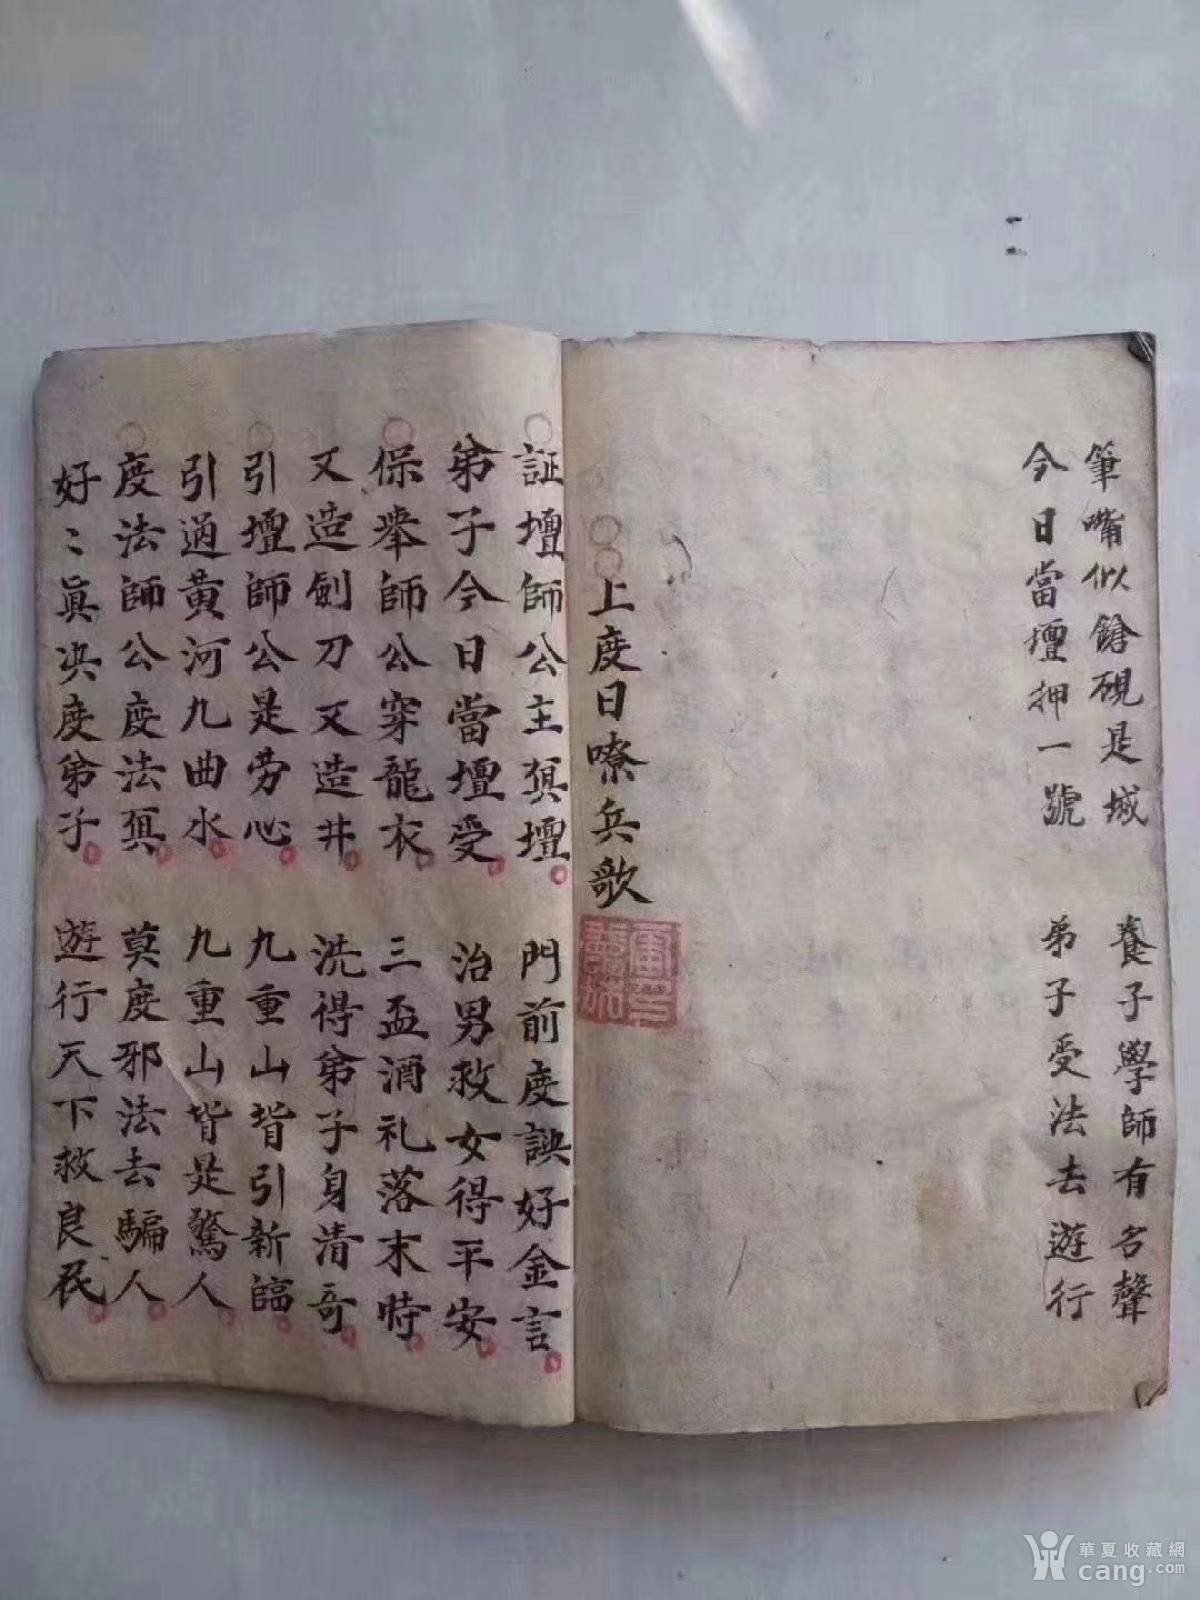 筆嘴似鎗硯是城 養子學師有名聲
今日當壇押一號 弟子受法去遊行
上度日嘹兵歌
証壇師公主㒷壇 門前度訣好金言
弟子今日當壇受 治男救女得平安
保舉師公穿龍衣 三盃酒礼落末時
又造劍刀又造井 洗得弟子身清奇
引壇師公是劳心 九重山背引新臨
引過黄河九曲水 九重山背是驚人
度法師公度法㒷 莫度邪法去騙人
好〻真决度弟子 遊行天下救良民
華夏收藏網
cang.com